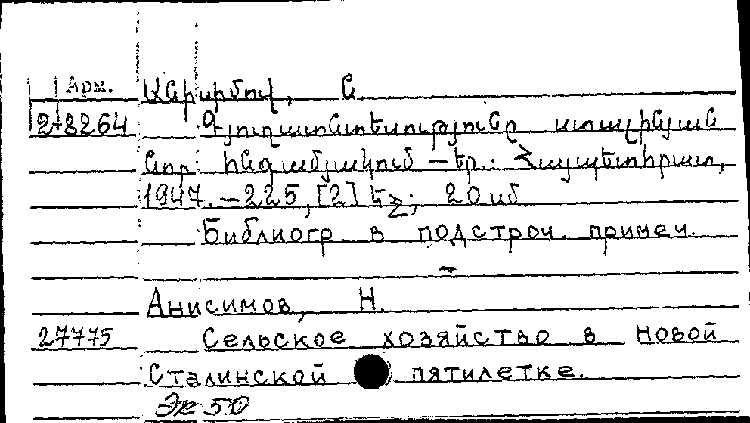 Арм.
Անիսիմով, Ն.
2-8264 Գյուղատնտեսությունը ստալինյան
նոր հնգամյակում — Եր.: Հայպետհրատ,
1947. — 225, [2] էջ; 20 սմ
Библиогр в подстроч. примеч.
Анисимов, Н.
27775 Сельское хозяйство в новой
Сталинской пятилетке.
Эк 50